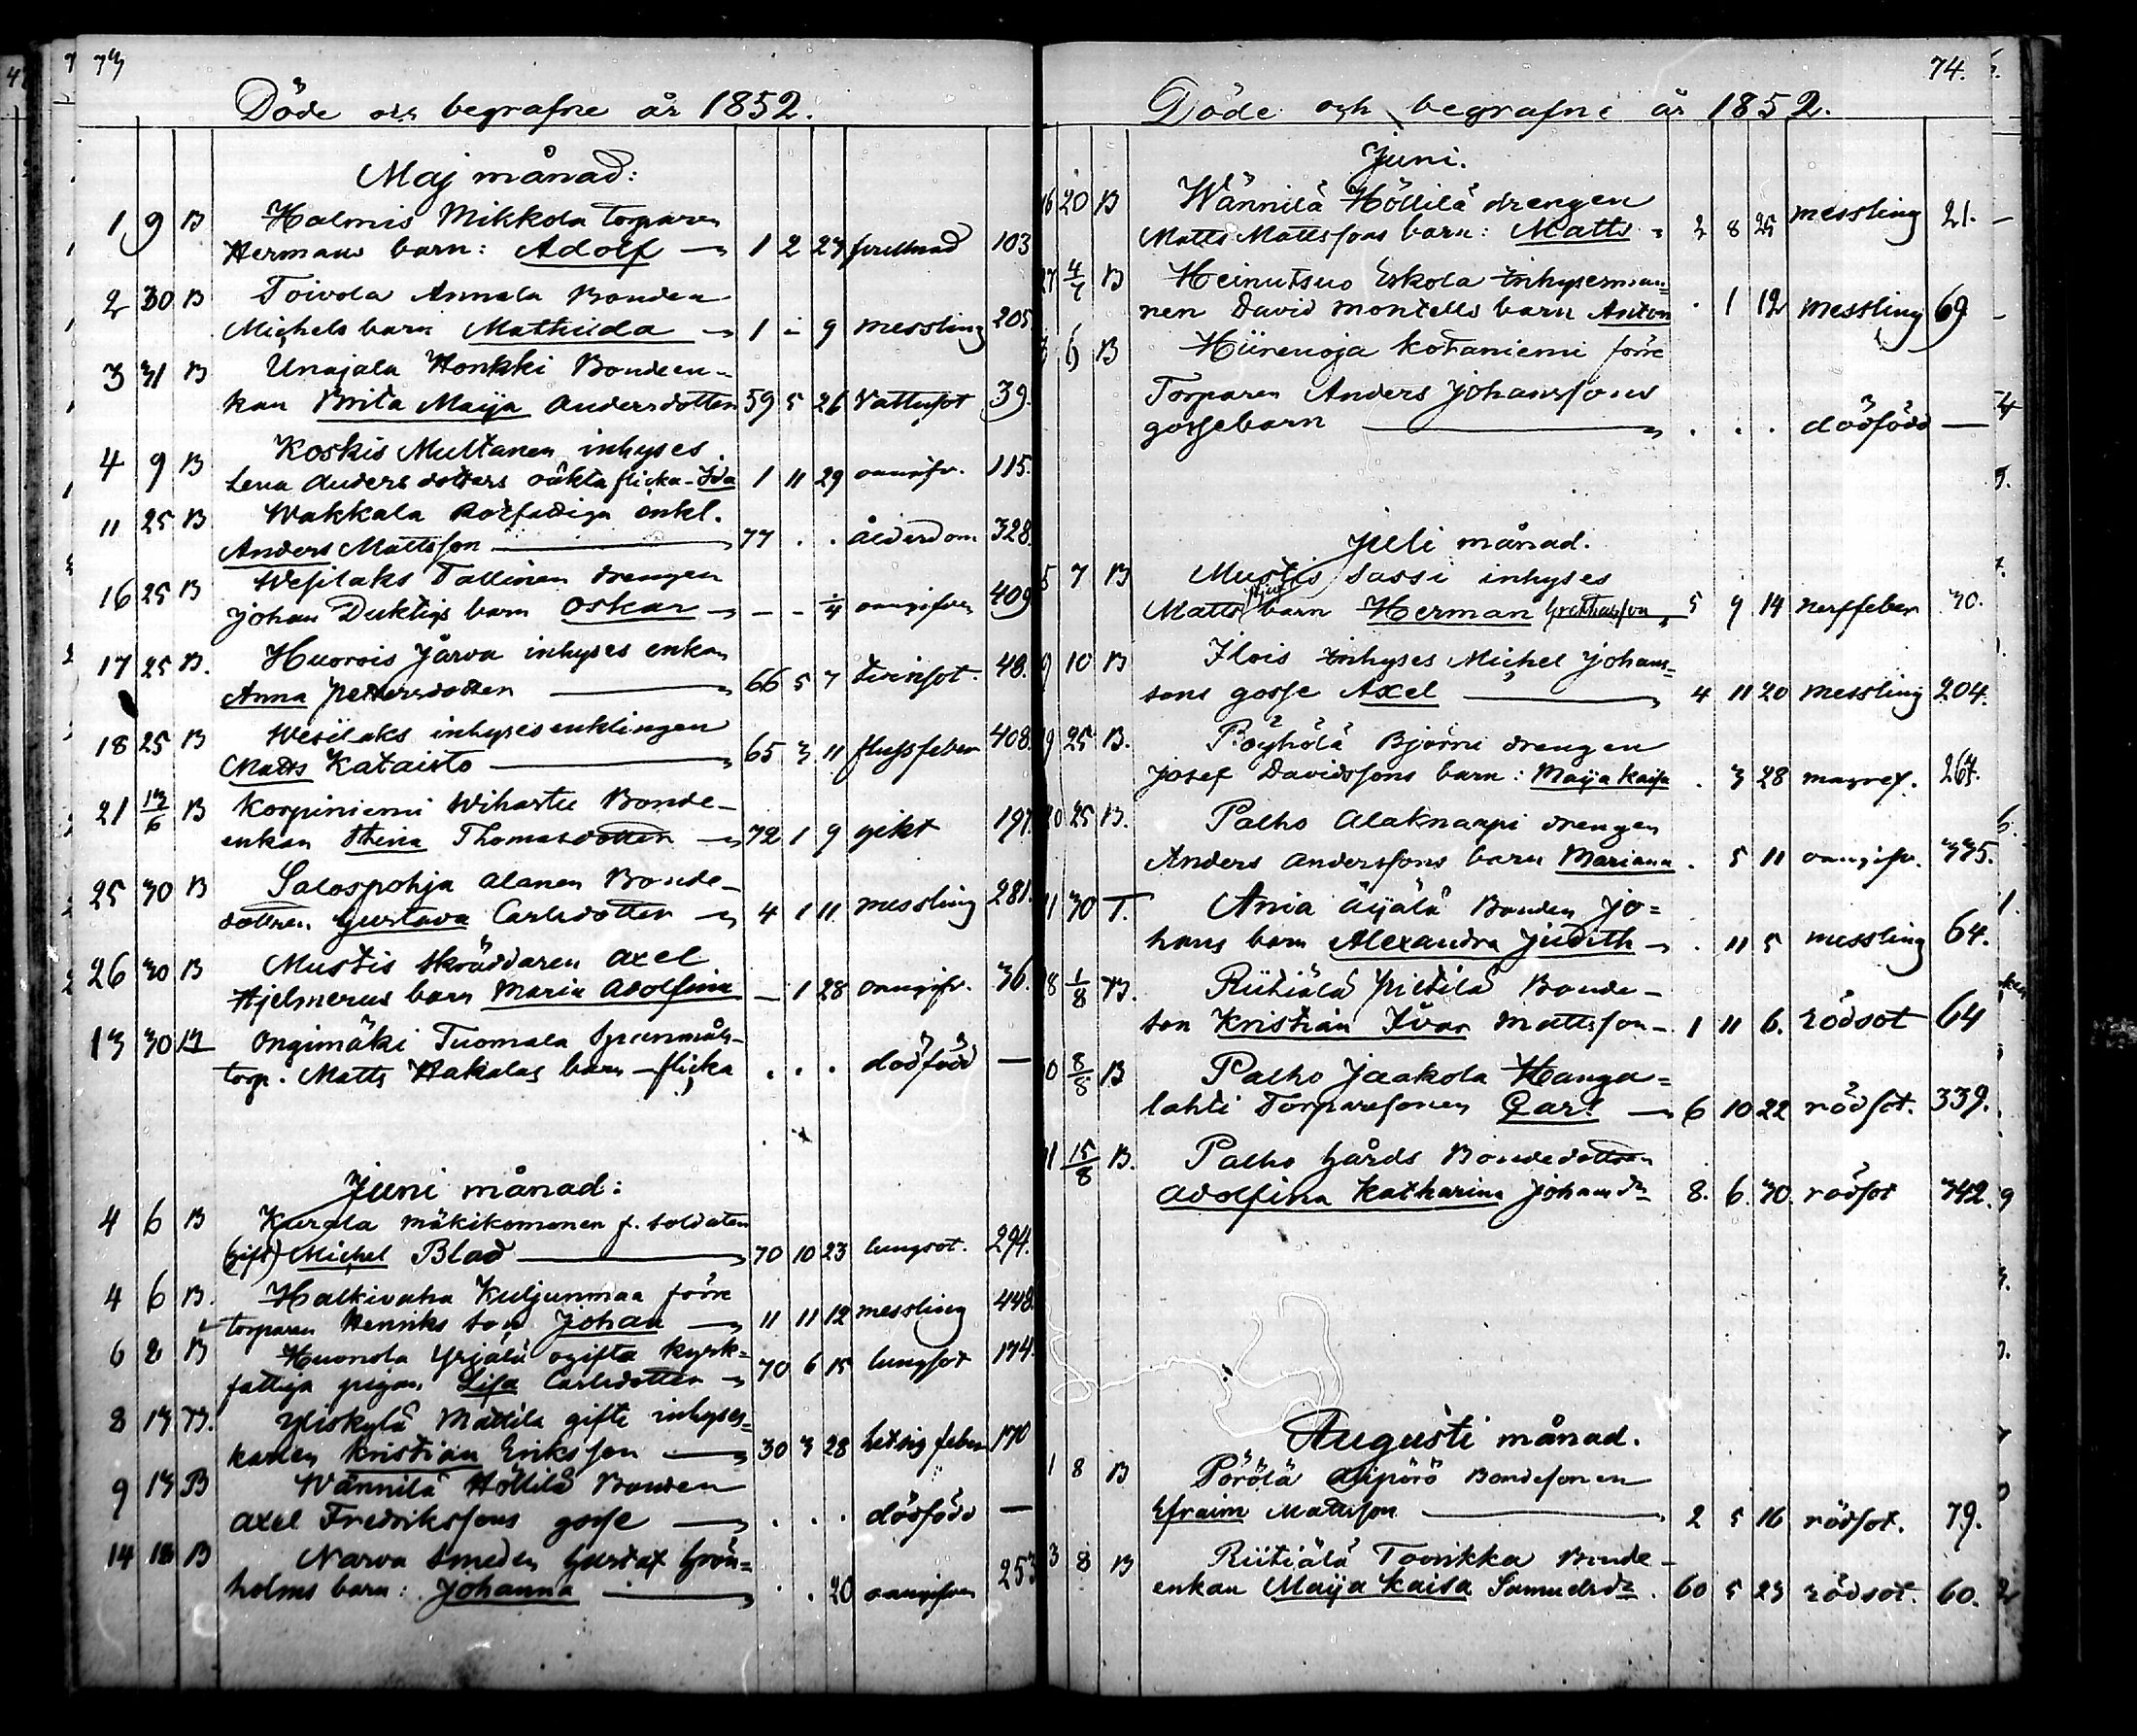 73
Döde och begrafne år 1852.
Maj månad:
1 9 B Halmis Mikkola torparen
Hermans barn: Adolf 1 2 23 103
2 30 B Toivola Annala Bonden
Michels barn Mathilda 1 - 9 messling 205
3 31 B Unajala Honkki Bondeen-
kan Brita Maija Andersdotter 59 5 26 Vattusot 39.
4 9 B Koskis Multanen inhyses
Lena Andersdotters oäkta flicka Ida 1 11 29 oangifv. 115.
11 25 B Wakkala Rotfattiga enkl.
Anders Mattsson 77 . . ålderdom 328.
16 25 B Wesilaks Tallinen drengen
Johan Duktigs barn Oskar - - 1/4 oangifven 409
17 25 B. Huorois Jårva inhyses enkan
Anna Pettersdotter 66 5 7 tvinsot. 48.
18 25 B Wesilaks inhysesenklingen
Matts Kataisto 65 3 11 flussfeber 408
21 13/6 B Korpiniemi Wihartu Bonde-
enkan Stina Thomasdotter 72 1 9 gikt 197.
25 30 B Salospohja Alanen Bonde-
dottren Gustava Carlsdotter 4 1 11 messling 281.
26 30 B Mustis Skräddaren Axel
Hjelmerus barn Maria Adolfina - 1 28 oangifv. 36.
13 30 B Ongimäki Tuomala
torp. Matts Hakalas barn - flicka . . . dödfödd —
Juni månad:
4 6 B Kurala Mäkikomonen f. soldaten
(gift) Michel Blad 70 10 23 lungsot. 294.
4 6 B. Halkivaha Kuljunmaa förre
torparen Henriks son Johan 11 11 12 messling 448.
6 8 B Huonola Yrjälä ogifta kyrk-
fattiga pigan Lisa Carlsdotter 70 6 15 lungsot 174.
8 13 B. Yliskylä Mattila gifte inhyses-
karlen Kristian Eriksson 30 3 28 hetsig feber 170
9 13 B Wännilä Höllilä Bonden
Axel Fredrikssons gosse . . . dödfödd —
14 18 B Narva Smeden Gustaf Grön-
holms barn: Johanna . . 20 oangifven 253
74.
Döde och begrafne år 1852.
Juni.
16 20 B Wännilä Höllilä drengen
Matts Mattssons barn: Matts 2 8 25 messling 21.
27 4/7 B Heinutsuo Eskola Inhyserman-
nen David Montells barn Anton . 1 12 messling 69
6 B Hiirenoja Kotaniemi förre
Torparen Anders Johanssons
gossebarn . . . dödfödd —
Juli månad.
5 7 B Mustis Sassi inhyses
Matts barn Herman 5 9 14 nerffeber 30.
9 10 B Ilois Inhyses Michel Johans-
sons gosse Axel 4 11 20 messling 204.
19 25 B. Pöyhölä Björni drengen
Josef Davidssons barn: Maija Kaisa . 3 28 magref. 267.
20 25 B. Palho Alaknaapi drengen
Anders Anderssons barn Mariana . 5 11 oangifv. 335.
11 30 T. Ania Äijälä Bonden Jo-
hans barn Alexandra Judith . 11 5 messling 64.
8 1/8 B. Riitiälä Pietilä Bonde-
son Kristian Ivar Mattsson 1 11 6. rödsot 64
0 8/8 B Palho Jaakola Hanga-
lahti Torparesonen Carl 6 10 22 rödsot. 339.
1 15/8 B. Palho Gårds Bondedottren
Adolfina Katharina Johansdr 8. 6. 30. rödsot 342.
Augusti månad.
1 8 B Pörölä Alipörö Bondesonen
Efraim Mattsson 2 5 16 rödsot. 79.
3 8 B Riitiälä Toorikka Bonde-
enkan Maija Kaisa Samuelsdr. 60 5 23 rödsot. 60.